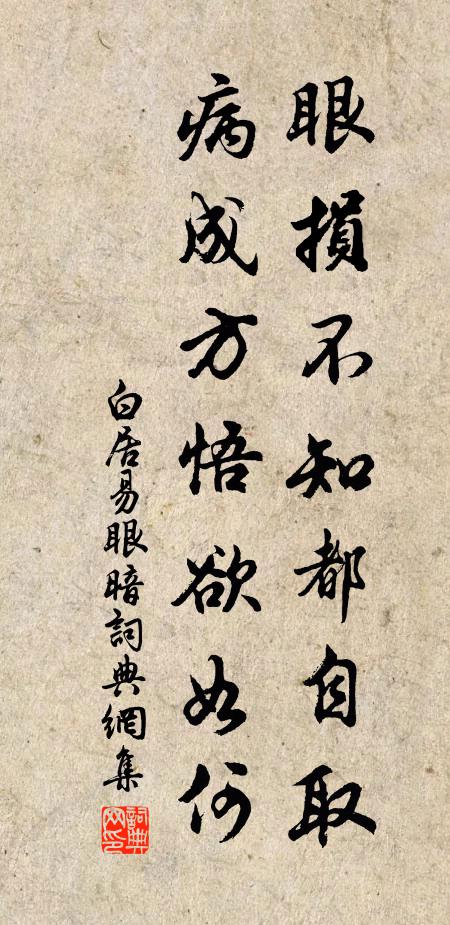 眼損不知都自取
病成方悟欲如何
白居易眼暗詞典網集
詞典網印